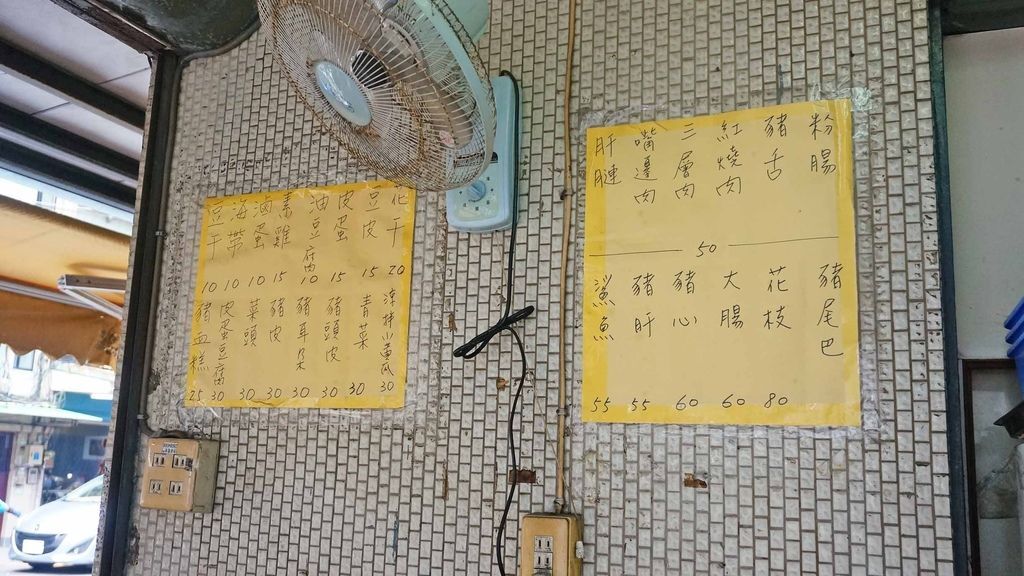 花干 20
豆皮 15
皮蛋 15
油豆腐 10
素雞 15
滷蛋 10
海帶 10
豆干 10
涼拌小黃瓜 30
青菜 30
豬頭皮 30
豬耳朵 30
豬皮 30
菜頭 30
皮蛋豆腐 30
豬血糕 25
粉腸
豬舌
紅燒肉
三層肉
嘴邊肉
肝連
50
豬尾巴
花枝 80
大腸 60
豬心 60
豬肝 55
鯊魚 55